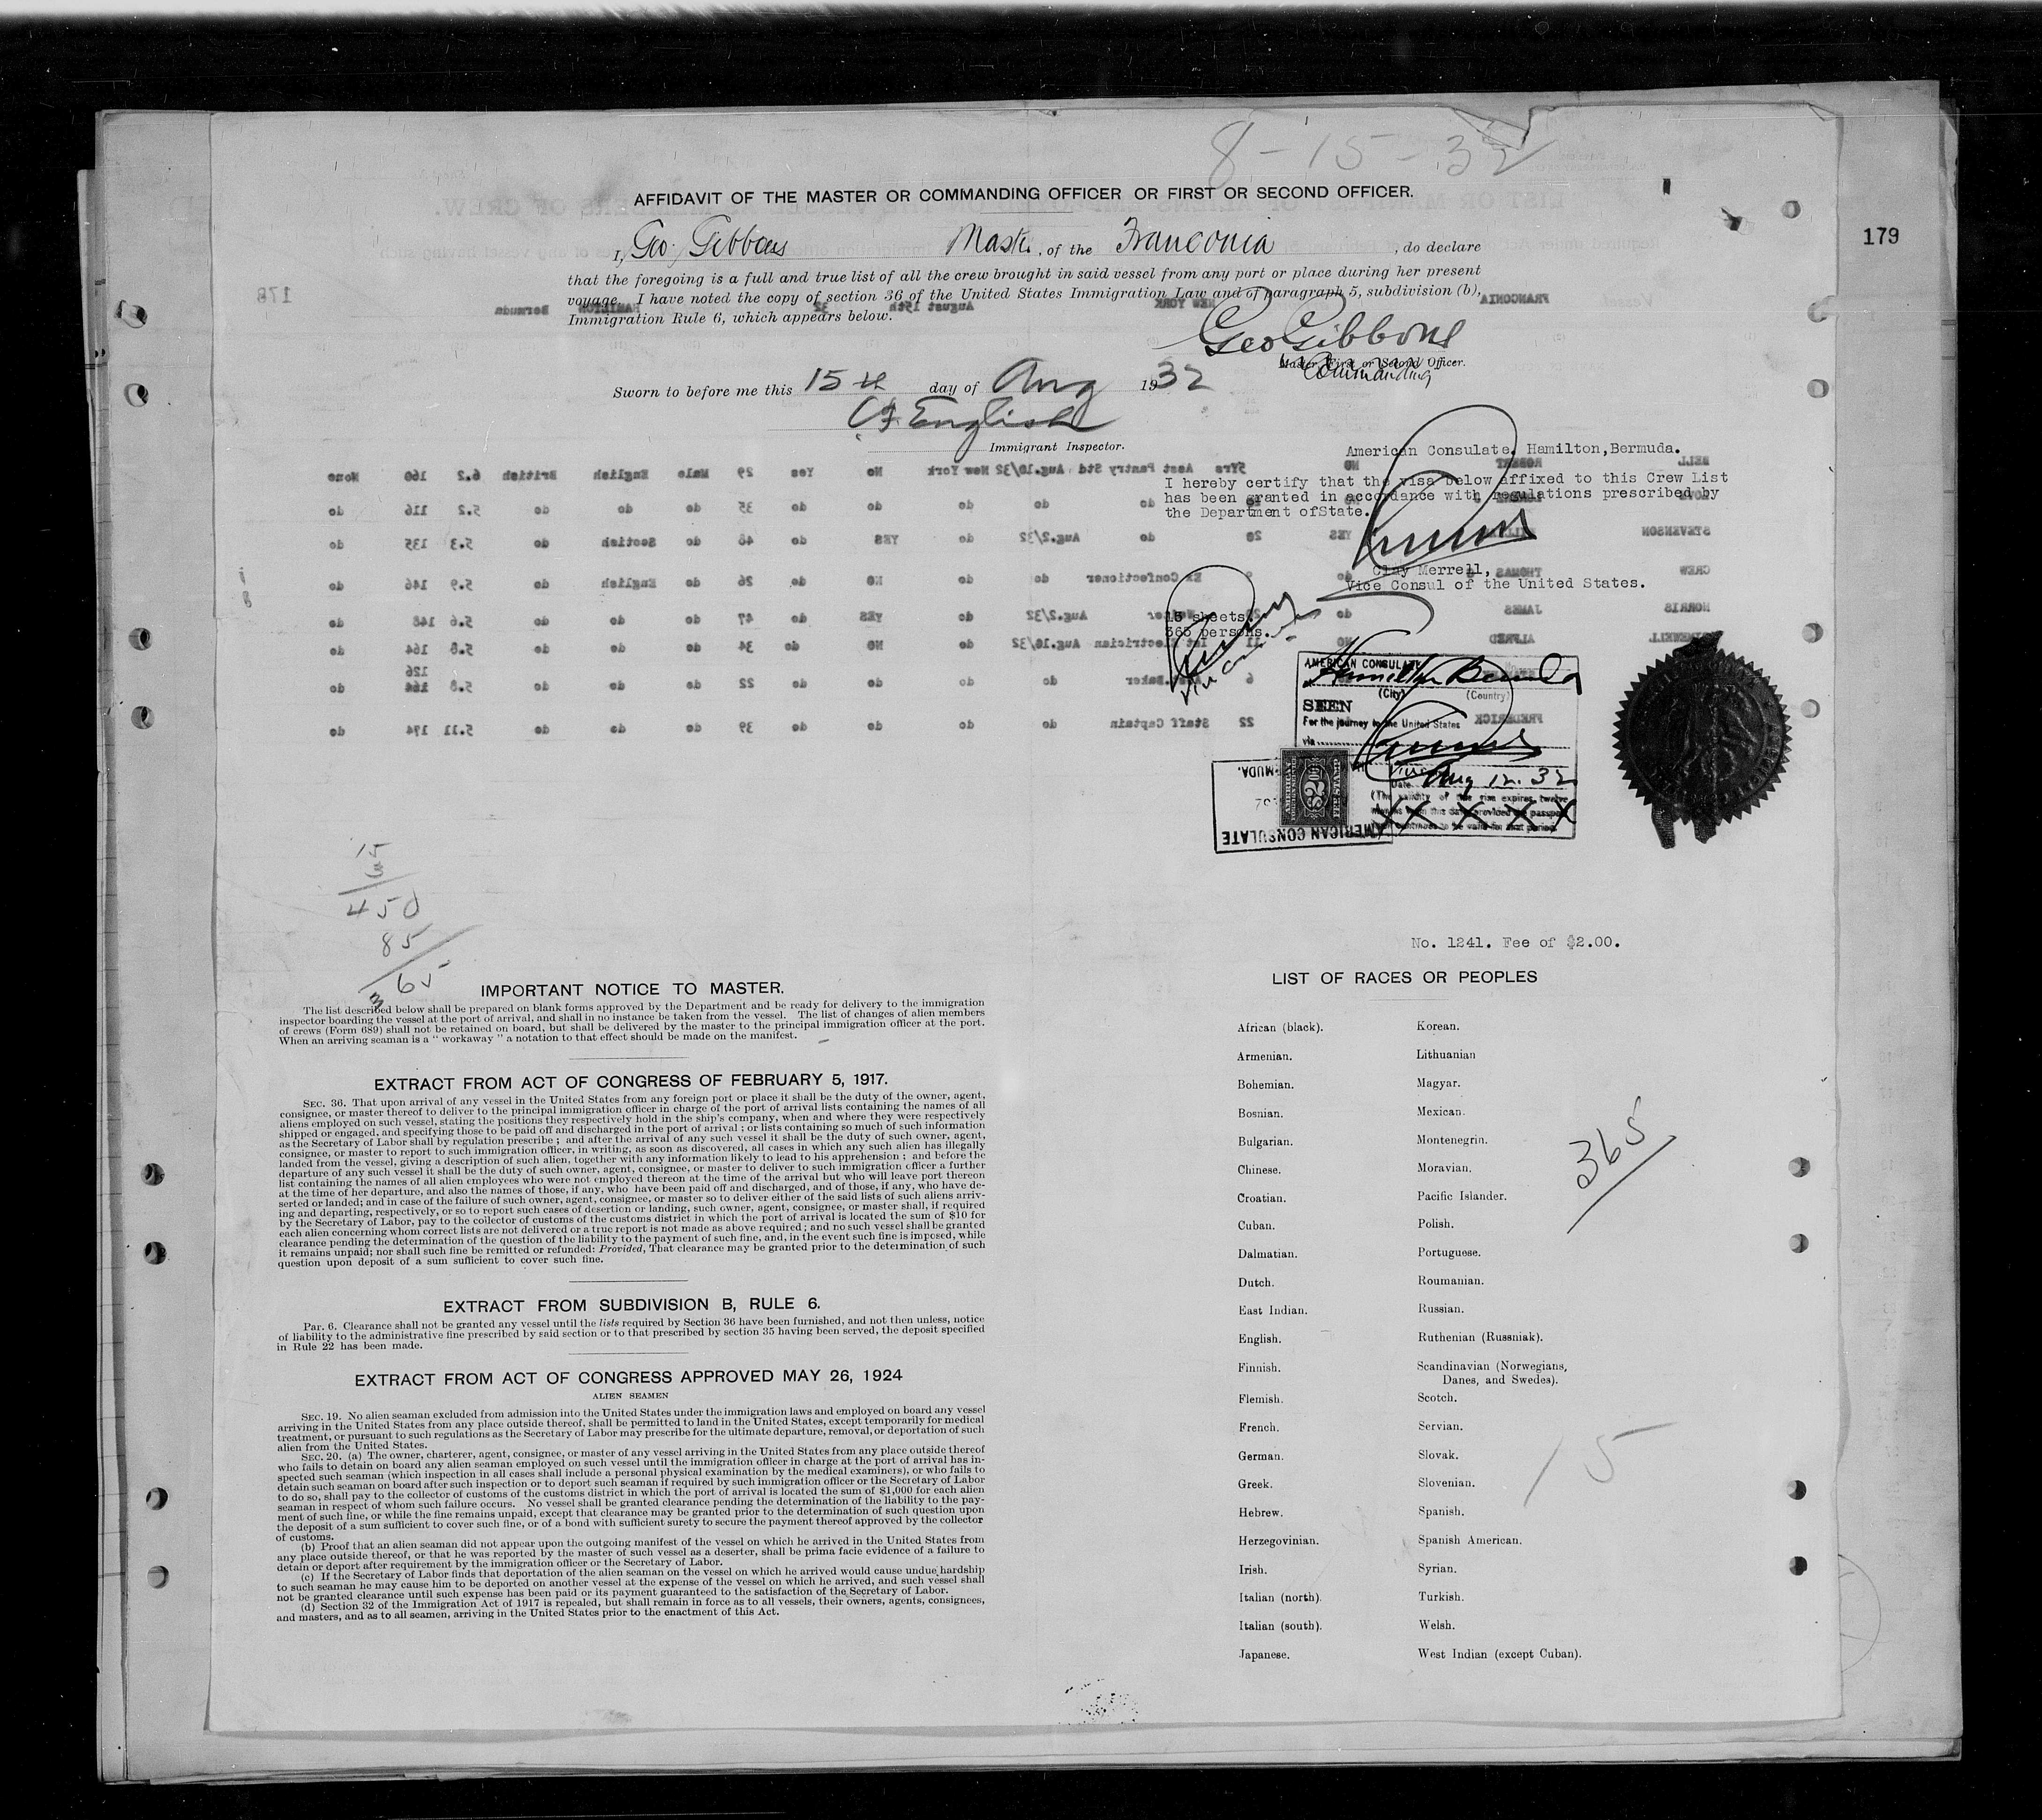 8-15-32
AFFIDAVIT OF THE MASTER OR COMMANDING OFFICER OR FIRST OR SECOND OFFICER.
179
I, Geo. Gibbons Master, of the Franconia, do declare
that the foregoing is a full and true list of all the crew brought in said vessel from any port or place during her present
voyage. I have noted the copy of section 36 of the United States Immigration Law and of paragraph 5, subdivision (b),
Immigration Rule 6, which appears below.
178
FRANCONIA NEW YORK August 15th 32 HAMILTON Bermuda
Geo Gibbons
Master, First or Second Officer.
Commanding
Sworn to before me this 15th day of Aug 1932
English
Immigrant Inspector.
American Consulate, Hamilton, Bermuda.
I hereby certify that the visa below affixed to this Crew List
has been granted in accordance with regulations prescribed by
the Department ofState.
Clay Merrell,
Vice Consul of the United States.
15 sheets.
365 persons.
BELL ROBERT NO 5Yrs Asst Pantry Std Aug.10/32 New York No Yes 29 Male English British 6.2 160 None
do do do do do 35 do do do 5.2 116 do
STEVENSON YES 20 do Aug.2/32 do YES do 48 do Scotish do 5.3 135 do
CREW THOMAS do Ex Confectioner do do NO do 26 do English do 5.9 146 do
MORRIS JAMES do Aug.2/32 do YES do 47 do do do 5.6 148 do
ALFRED NO 11 Electrician Aug.10/32 do NO do 34 do do do 5.8 164 do
126
6 Baker do do do do 22 do do do 5.8 164 do
FREDERICK 22 Staff Captain do do do do 39 do do do 5.11 174 do
AMERICAN CONSULATE
Hamilton Bermuda
(City) (Country)
SEEN
For the journey to the United States
via
Date Aug 12. 32
(The validity of this visa expires twelve
months from this date provided the passport
continues to be valid for that period.
X X X X X
$2
AMERICAN CONSULATE
15
3
450
85
365
No. 1241. Fee of $2.00.
IMPORTANT NOTICE TO MASTER.
The list described below shall be prepared on blank forms approved by the Department and be ready for delivery to the immigration
inspector boarding the vessel at the port of arrival, and shall in no instance be taken from the vessel. The list of changes of alien members
of crews (Form 689) shall not be retained on board, but shall be delivered by the master to the principal immigration officer at the port.
When an arriving seaman is a " workaway " a notation to that effect should be made on the manifest.
EXTRACT FROM ACT OF CONGRESS OF FEBRUARY 5, 1917.
SEC. 36. That upon arrival of any vessel in the United States from any foreign port or place it shall be the duty of the owner, agent,
consignee, or master thereof to deliver to the principal immigration officer in charge of the port of arrival lists containing the names of all
aliens employed on such vessel, stating the positions they respectively hold in the ship's company, when and where they were respectively
shipped or engaged, and specifying those to be paid off and discharged in the port of arrival ; or lists containing so much of such information
as the Secretary of Labor shall by regulation prescribe ; and after the arrival of any such vessel it shall be the duty of such owner, agent,
consignee, or master to report to such immigration officer, in writing, as soon as discovered, all cases in which any such alien has illegally
landed from the vessel, giving a description of such alien, together with any information likely to lead to his apprehension ; and before the
departure of any such vessel it shall be the duty of such owner, agent, consignee, or master to deliver to such immigration officer a further
list containing the names of all alien employees who were not employed thereon at the time of the arrival but who will leave port thereon
at the time of her departure, and also the names of those, if any, who have been paid off and discharged, and of those, if any, who have de-
serted or landed; and in case of the failure of such owner, agent, consignee, or master so to deliver either of the said lists of such aliens arriv-
ing and departing, respectively, or so to report such cases of desertion or landing, such owner, agent, consignee, or master shall, if required
by the Secretary of Labor, pay to the collector of customs of the customs district in which the port of arrival is located the sum of $10 for
each alien concerning whom correct lists are not delivered or a true report is not made as above required ; and no such vessel shall be granted
clearance pending the determination of the question of the liability to the payment of such fine, and, in the event such fine is imposed, while
it remains unpaid; nor shall such fine be remitted or refunded: Provided, That clearance may be granted prior to the determination of such
question upon deposit of a sum sufficient to cover such fine.
EXTRACT FROM SUBDIVISION B, RULE 6.
Par. 6. Clearance shall not be granted any vessel until the lists required by Section 36 have been furnished, and not then unless, notice
of liability to the administrative fine prescribed by said section or to that prescribed by section 35 having been served, the deposit specified
in Rule 22 has been made.
EXTRACT FROM ACT OF CONGRESS APPROVED MAY 26, 1924
ALIEN SEAMEN
SEC. 19. No alien seaman excluded from admission into the United States under the immigration laws and employed on board any vessel
arriving in the United States from any place outside thereof, shall be permitted to land in the United States, except temporarily for medical
treatment, or pursuant to such regulations as the Secretary of Labor may prescribe for the ultimate departure, removal, or deportation of such
alien from the United States.
SEC. 20. (a) The owner, charterer, agent, consignee, or master of any vessel arriving in the United States from any place outside thereof
who fails to detain on board any alien seaman employed on such vessel until the immigration officer in charge at the port of arrival has in-
spected such seaman (which inspection in all cases shall include a personal physical examination by the medical examiners), or who fails to
detain such seaman on board after such inspection or to deport such seaman if required by such immigration officer or the Secretary of Labor
to do so, shall pay to the collector of customs of the customs district in which the port of arrival is located the sum of $1,000 for each alien
seaman in respect of whom such failure occurs. No vessel shall be granted clearance pending the determination of the liability to the pay-
ment of such fine, or while the fine remains unpaid, except that clearance may be granted prior to the determination of such question upon
the deposit of a sum sufficient to cover such fine, or of a bond with sufficient surety to secure the payment thereof approved by the collector
of customs.
(b) Proof that an alien seaman did not appear upon the outgoing manifest of the vessel on which he arrived in the United States from
any place outside thereof, or that he was reported by the master of such vessel as a deserter, shall be prima facie evidence of a failure to
detain or deport after requirement by the immigration officer or the Secretary of Labor.
(c) If the Secretary of Labor finds that deportation of the alien seaman on the vessel on which he arrived would cause undue hardship
to such seaman he may cause him to be deported on another vessel at the expense of the vessel on which he arrived, and such vessel shall
not be granted clearance until such expense has been paid or its payment guaranteed to the satisfaction of the Secretary of Labor.
(d) Section 32 of the Immigration Act of 1917 is repealed, but shall remain in force as to all vessels, their owners, agents, consignees,
and masters, and as to all seamen, arriving in the United States prior to the enactment of this Act.
LIST OF RACES OR PEOPLES
African (black). Korean.
Armenian. Lithuanian
Bohemian. Magyar.
Bosnian. Mexican.
Bulgarian. Montenegrin.
Chinese. Moravian.
Croatian. Pacific Islander.
Cuban. Polish.
Dalmatian. Portuguese.
Dutch. Roumanian.
East Indian. Russian.
English. Ruthenian (Russniak).
Finnish. Scandinavian (Norwegians,
Danes, and Swedes).
Flemish. Scotch.
French. Servian.
German. Slovak.
Greek. Slovenian.
Hebrew. Spanish.
Herzegovinian. Spanish American.
Irish. Syrian.
Italian (north). Turkish.
Italian (south). Welsh.
Japanese. West Indian (except Cuban).
365
15